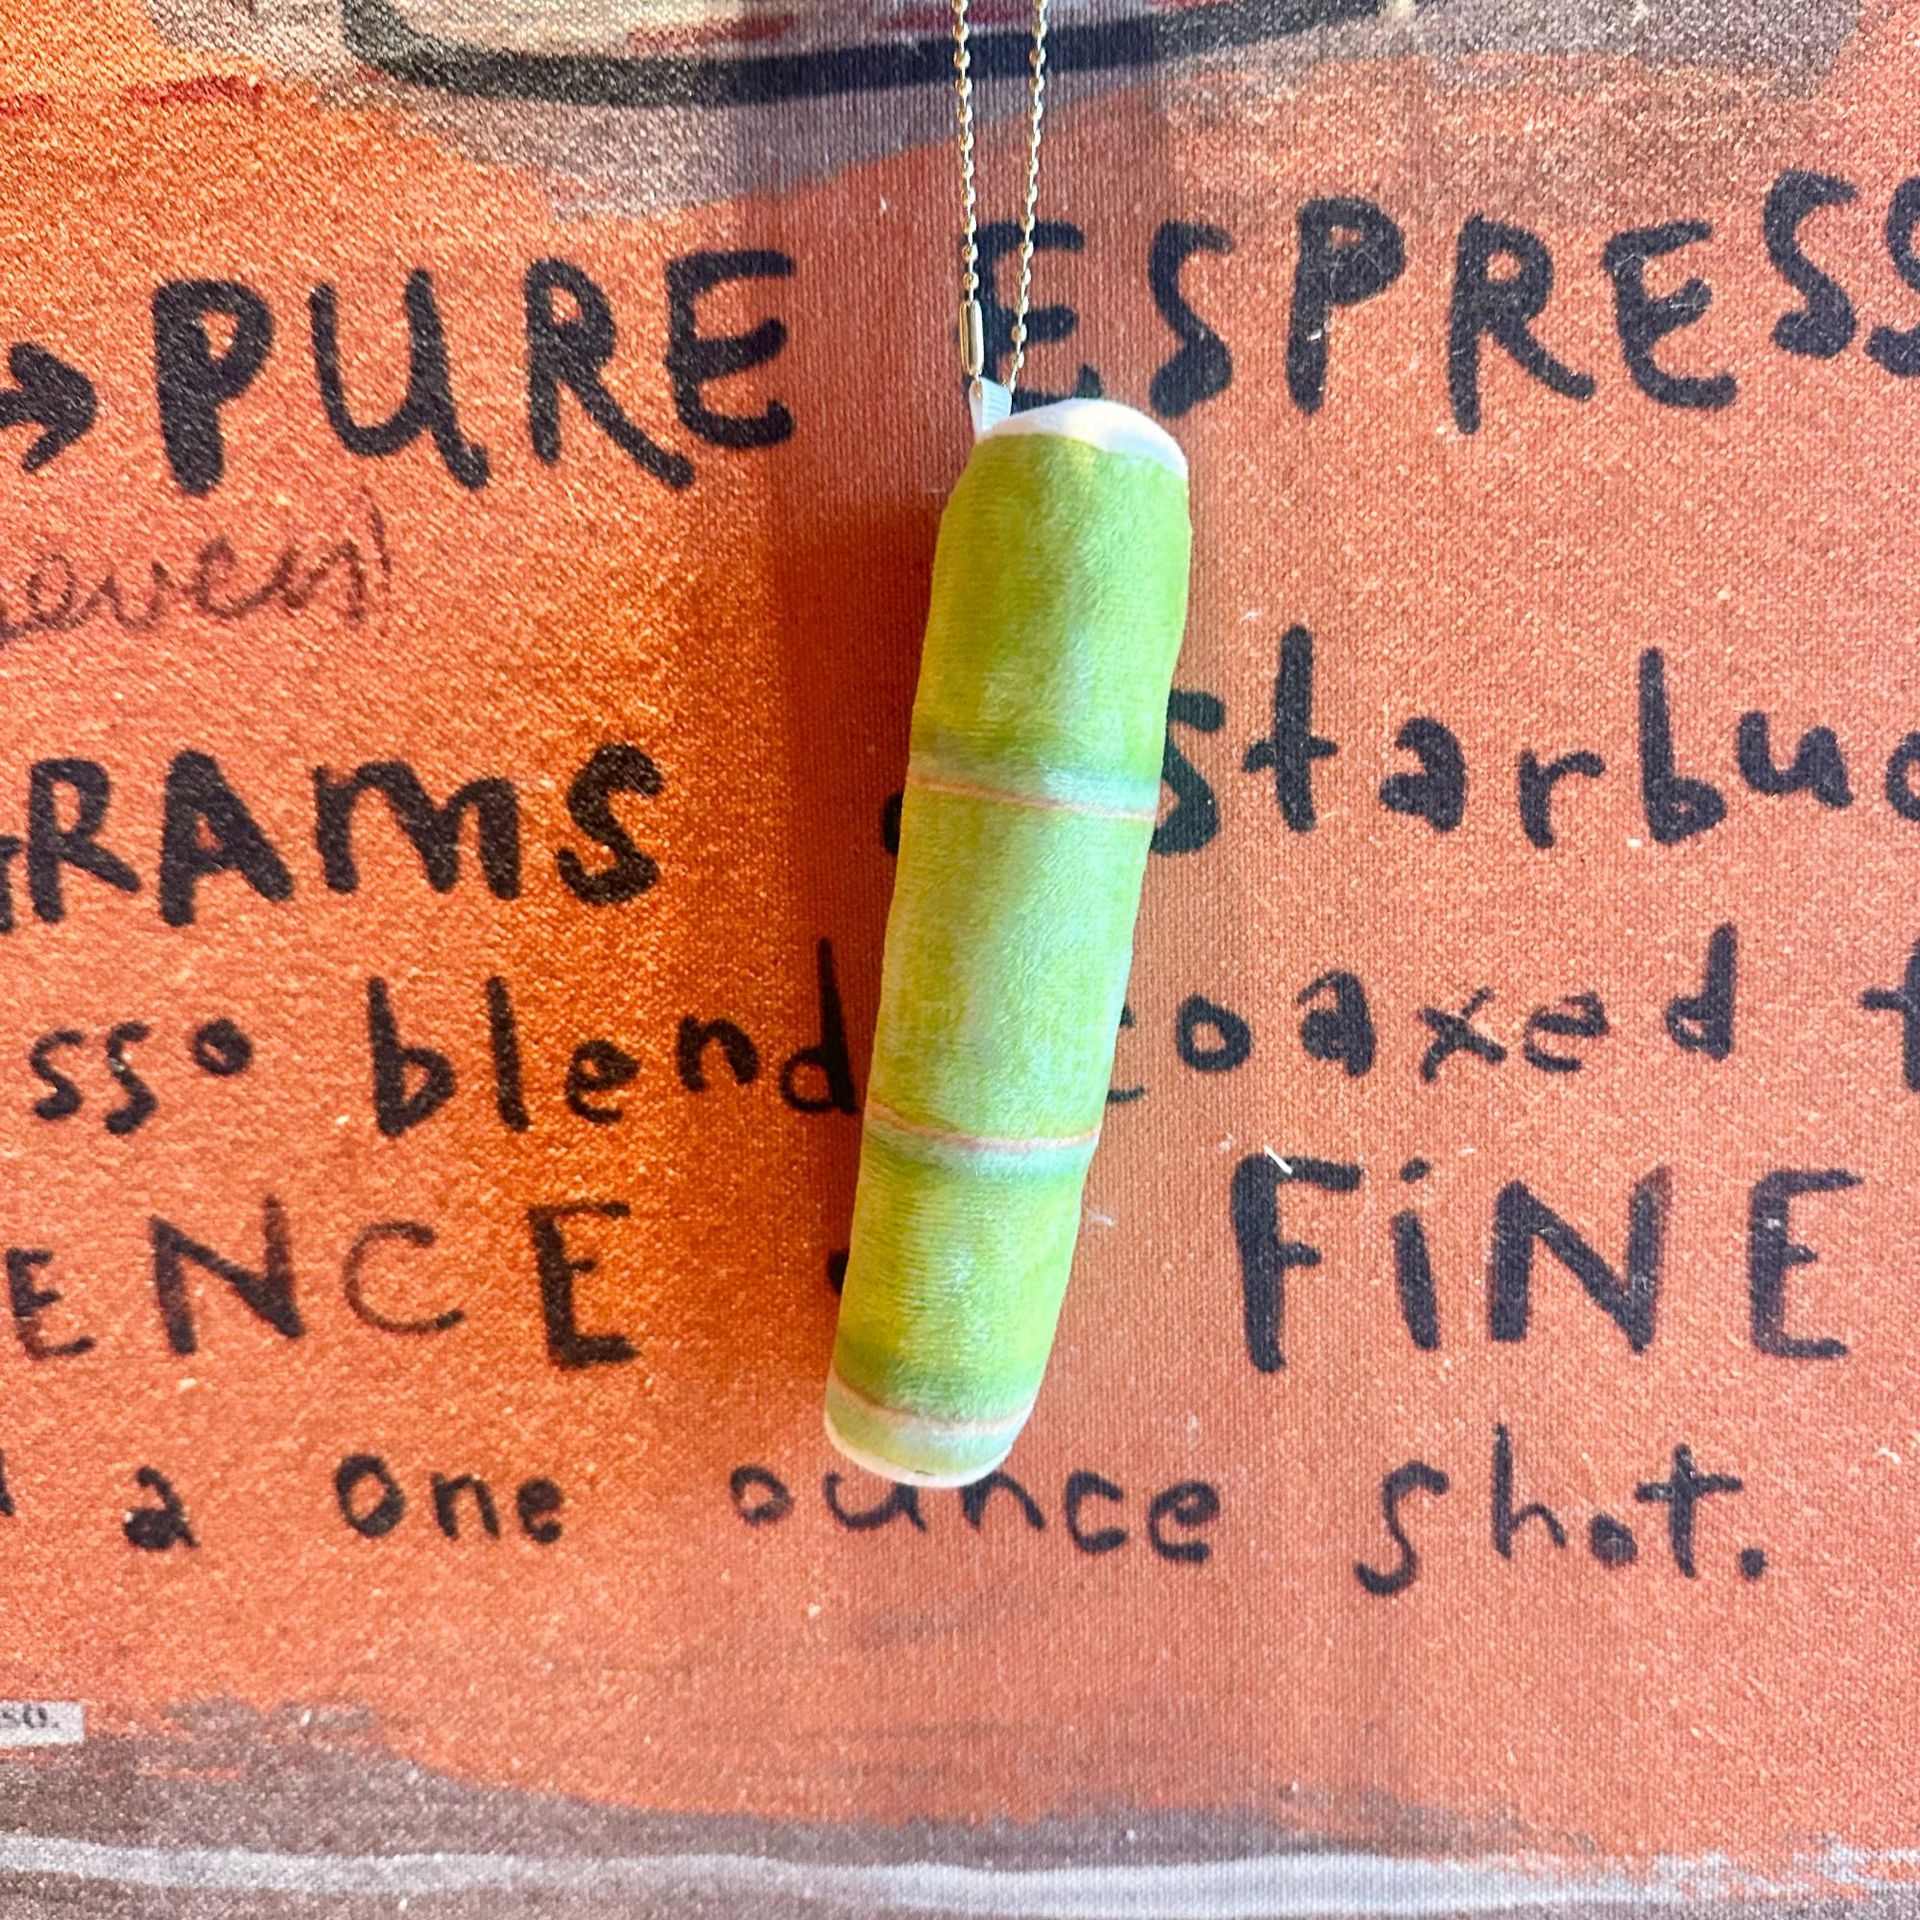 PURE ESPRESS
GRAMS Starbuc
sso blend coaxed
ENCE FiNE
a one ounce shot.
so.